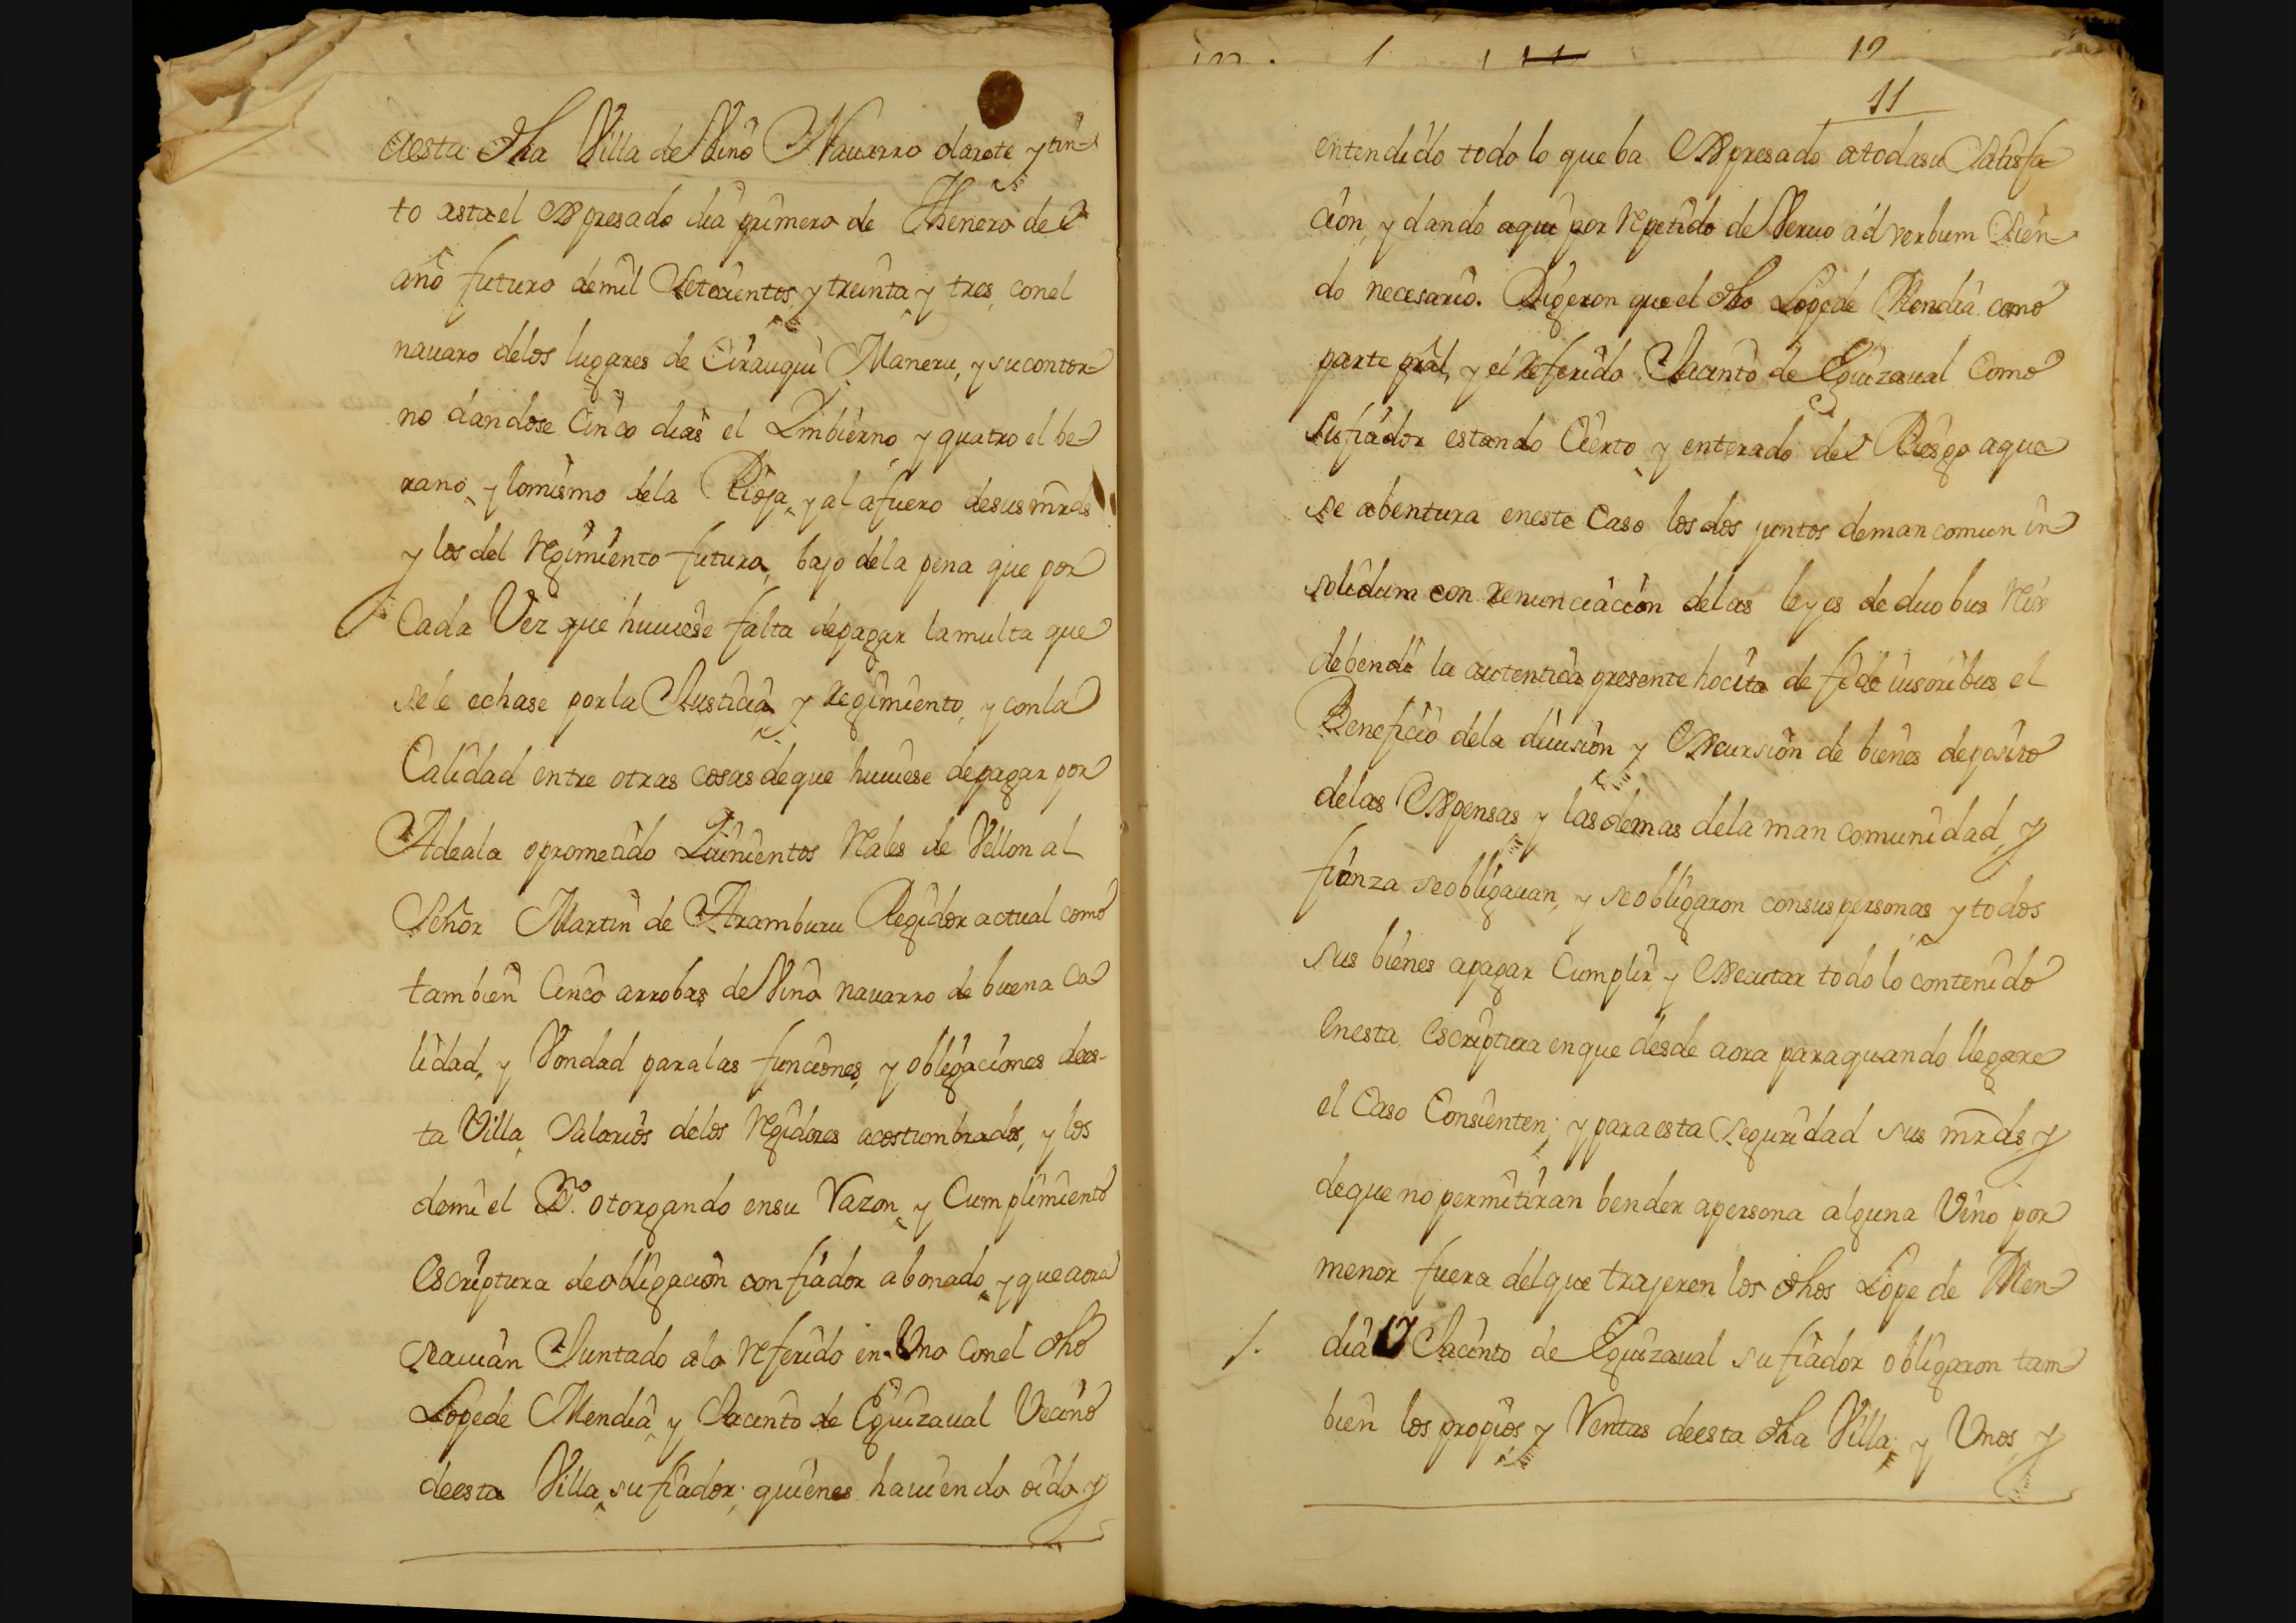 aesta dha Villa de Vino Navarro clarete y tin-
to asta el expresado dia primero de Henero del
año futuro de mil Setecientos y treinta y tres, conel
nauaro delos lugares de Cirauqui Mañeru, y su contor-
no dandose Cinco dias el Imbierno, y quatro el be-
rano, y lomismo dela Rioja, y al afuero desus mrds
y los del Regimiento futuro, bajo dela pena que por
Cada Vez que huuiese falta de pagar la multa que
sele echase por la Justicia, y regimiento, y conla
Calidad entre otras cosas de que huuiese depagar por
Adeala o prometido Quinientos Reales de Vellon al
Señor Martin de Aramburu Regidor actual como
tambien Cinco arrobas de Vino nauarro de buena Ca
lidad, y Vondad para las funciones, y obligaciones dees-
ta Villa, Salarios delos Regidores acostumbrados, y los
demi el Ss.no otorgando ensu Razon, y Cumplimiento
Escriptura de obligacion con fiador abonado, y que aora
se auian Juntado alo referido en Uno Conel dho
Lope de Mendia, y Jacinto de Eguizaual Vecino
deesta Villa, su fiador; quienes hauiendo oido y
11
entendido todo lo que ba Expresado atodasu Satisfa-
cion, y dando aqui por repetido de Veruo ad verbum Sien-
do necesario. Digeron que el dho Lope de Mendia como
parte pral, y el referido Jacinto de Eguizaual Como
su fiador estando Cierto, y enterado del Riesgo aque
se abentura eneste Caso los dos juntos deman comun in
solidum con renunciacion delas leyes de duobus Reis
debendi la autentica presente hocita de fide iusoribus, el
Beneficio dela diuision y Excursion de bienes deposito
delas Expensas y las demas dela man comunidad, y
fianza se obligauan, y se obligaron consus personas y todos
sus bienes apagar Cumplir, y Executar todo lo contenido
Enesta Escriptura enque desde aora para quando llegare
el Caso Consienten; y para esta Seguridad sus mrds, y
deque no permitiran bender apersona alguna Vino por
menor fuera delque trajeren los dhos Lope de Men
dia y Jacinto de Eguizaual su fiador obligaron tam
bien los propios, y Rentas deesta dha Villa, y Unos, y